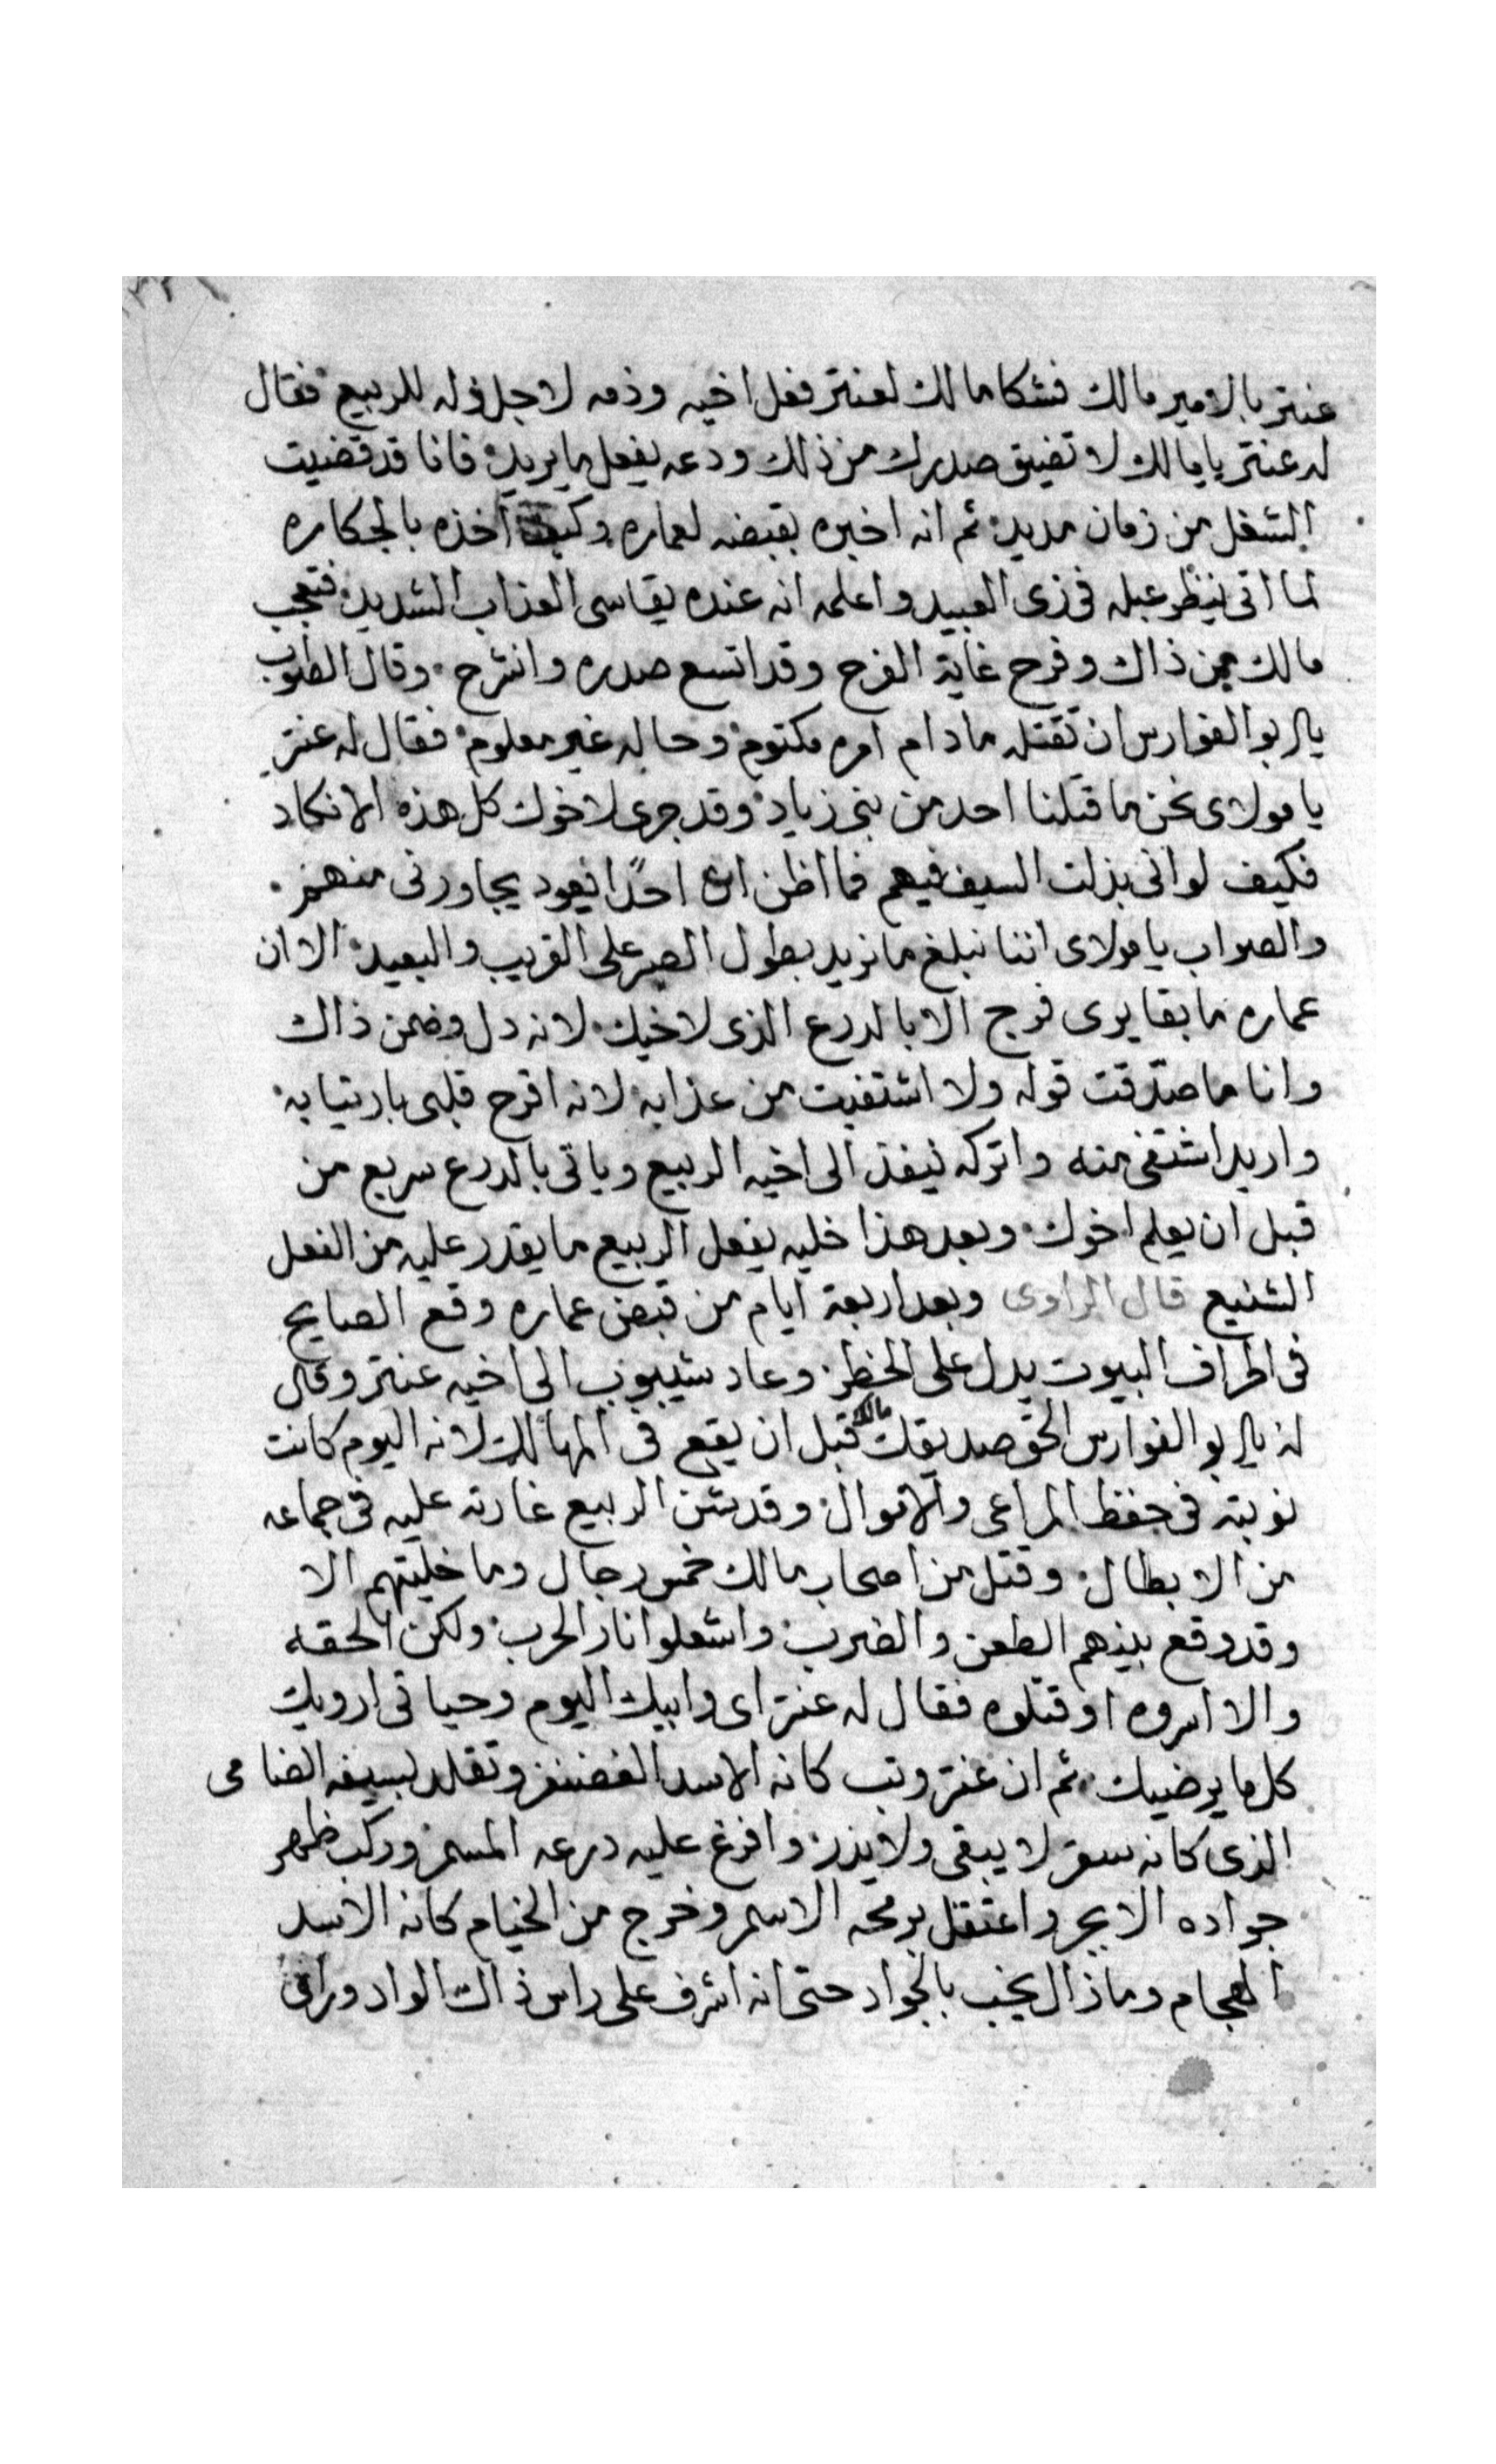 عنتر بالامير مالك فشكا مالك لعنتر فعل اخيه وذمه لاجل قوله للربيع فقال
له عنتر يا مالك لا تضيق صدرك من ذلك ودعه يفعل ما يريد فانا قد قضيت
الشغل من زمان مديد ثم انه اخبره بقبضه لعماره وكيف اخذه بالجكاره
لما اتى ينظر عبله فى زى العبيد واعلمه انه عنده يقاسى العذاب الشديد فتعجب
مالك من ذاك وفرح غاية الفرح وقد اتسع صدره وانشرح وقال الصواب
يا ابو الفوارس ان تقتله ما دام امره مكتوم وحاله غير معلوم فقال له عنتر
يا مولاى نحن ما قتلنا احد من بنى زياد وقد جرى لاخوك كل هذه الانكاد
فكيف لو انى بذلت السيف فيهم فما اظن ان احدًا يعود يجاورنى منهم
والصواب يا مولاى اننا نبلغ ما نريد بطول الصبر على القريب والبعيد الا ان
عماره ما بقا يرى فرج الا بالدرع الذى لاخيك لانه دل وضمن ذاك
وانا ما صدقت قوله ولا اشتفيت من عذابه لانه اقرح قلبى بارتيابه
واريد اشتفى منه واتركه ينفذ الى اخيه الربيع وياتى بالدرع سريع من
قبل ان يعلم اخوك وبعد هذا خليه يفعل الربيع ما يقدر عليه من الفعل
الشنيع قال الراوى وبعد اربعة ايام من قبض عماره وقع الصايح
فى اطراف البيوت يدل على الخطر وعاد شيبوب الى اخيه عنتر وقال
له يا ابو الفوارس الحق صديقك مالك قبل ان يقع فى المهالك لانه اليوم كانت
نوبته فى حفظ المراعى والاموال وقد شن الربيع غارته عليه فى جماعه
من الابطال وقتل من اصحاب مالك خمس رجال وما خليتهم الا
وقد وقع بينهم الطعن والضرب واشعلوا نار الحرب ولكن الحقه
والا اسروه او قتلوه فقال له عنتر اى وابيك اليوم وحياتى ارويك
كل ما يرضيك ثم ان عنتر وثب كانه الاسد الغضنفر وتقلد بسيفه الضامى
الذى كانه سقر لا يبقى ولا يذر وافرغ عليه درعه المسمر وركب ظهر
جواده الابجر واعتقل برمحه الاسمر وخرج من الخيام كانه الاسد
الهجام وما زال يخب بالجواد حتى انه اشرف على راس ذاك الواد وراى